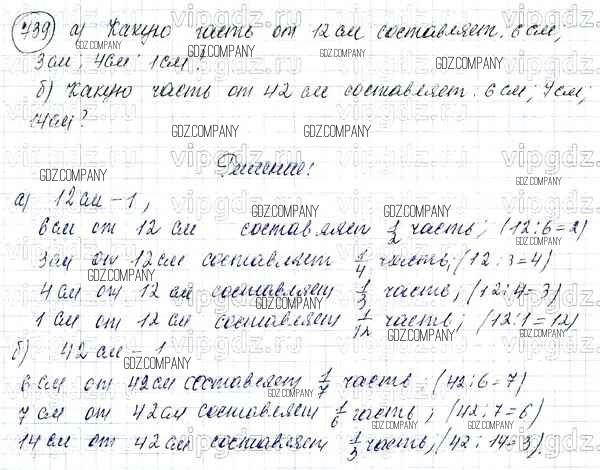 739) а) Какую часть от 12 см составляет: 6 см,
3 см; 4 см; 1 см?
б) Какую часть от 42 см составляет: 6 см; 7 см;
14 см?
Решение:
а) 12 см – 1,
6 см от 12 см составляет 1/2 часть; (12:6=2)
3 см от 12 см составляет 1/4 часть; (12:3=4)
4 см от 12 см составляет 1/3 часть; (12:4=3)
1 см от 12 см составляет 1/12 часть; (12:1=12)
б) 42 см – 1
6 см от 42 см составляет 1/7 часть; (42:6=7)
7 см от 42 см составляет 1/6 часть; (42:7=6)
14 см от 42 см составляет 1/3 часть; (42:14=3).
GDZ.COMPANY
vipgdz.com